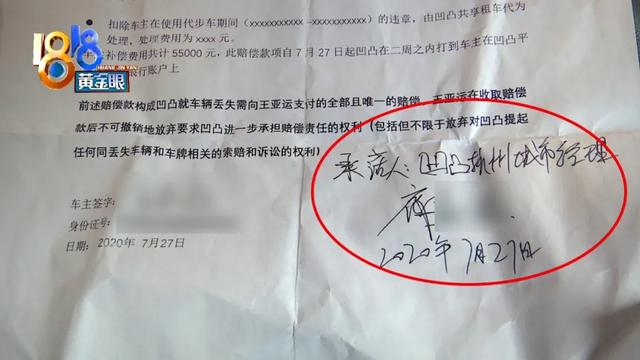 扣除车主在使用代步车期间（xxxxxxxxxx –xxxxxxxxxx）的违章，由凹凸共享租车代为
处理，处理费用为 xxxx 元。
补偿费用共计 55000 元，此赔偿款项自 7 月 27 日起凹凸在二周之内打到车主在凹凸平
银行账户上
1818
黄金眼
前述赔偿款构成凹凸就车辆丢失需向王亚运支付的全部且唯一的赔偿，王亚运在收取赔偿
款后不可撤销地放弃要求凹凸进一步承担赔偿责任的权利（包括但不限于放弃对凹凸提起
任何同丢失车辆和车牌相关的索赔和诉讼的权利）
承诺人：凹凸杭州城市经理
2020年7月27日
车主签字：
身份证号：
日期：2020 年 7月27日